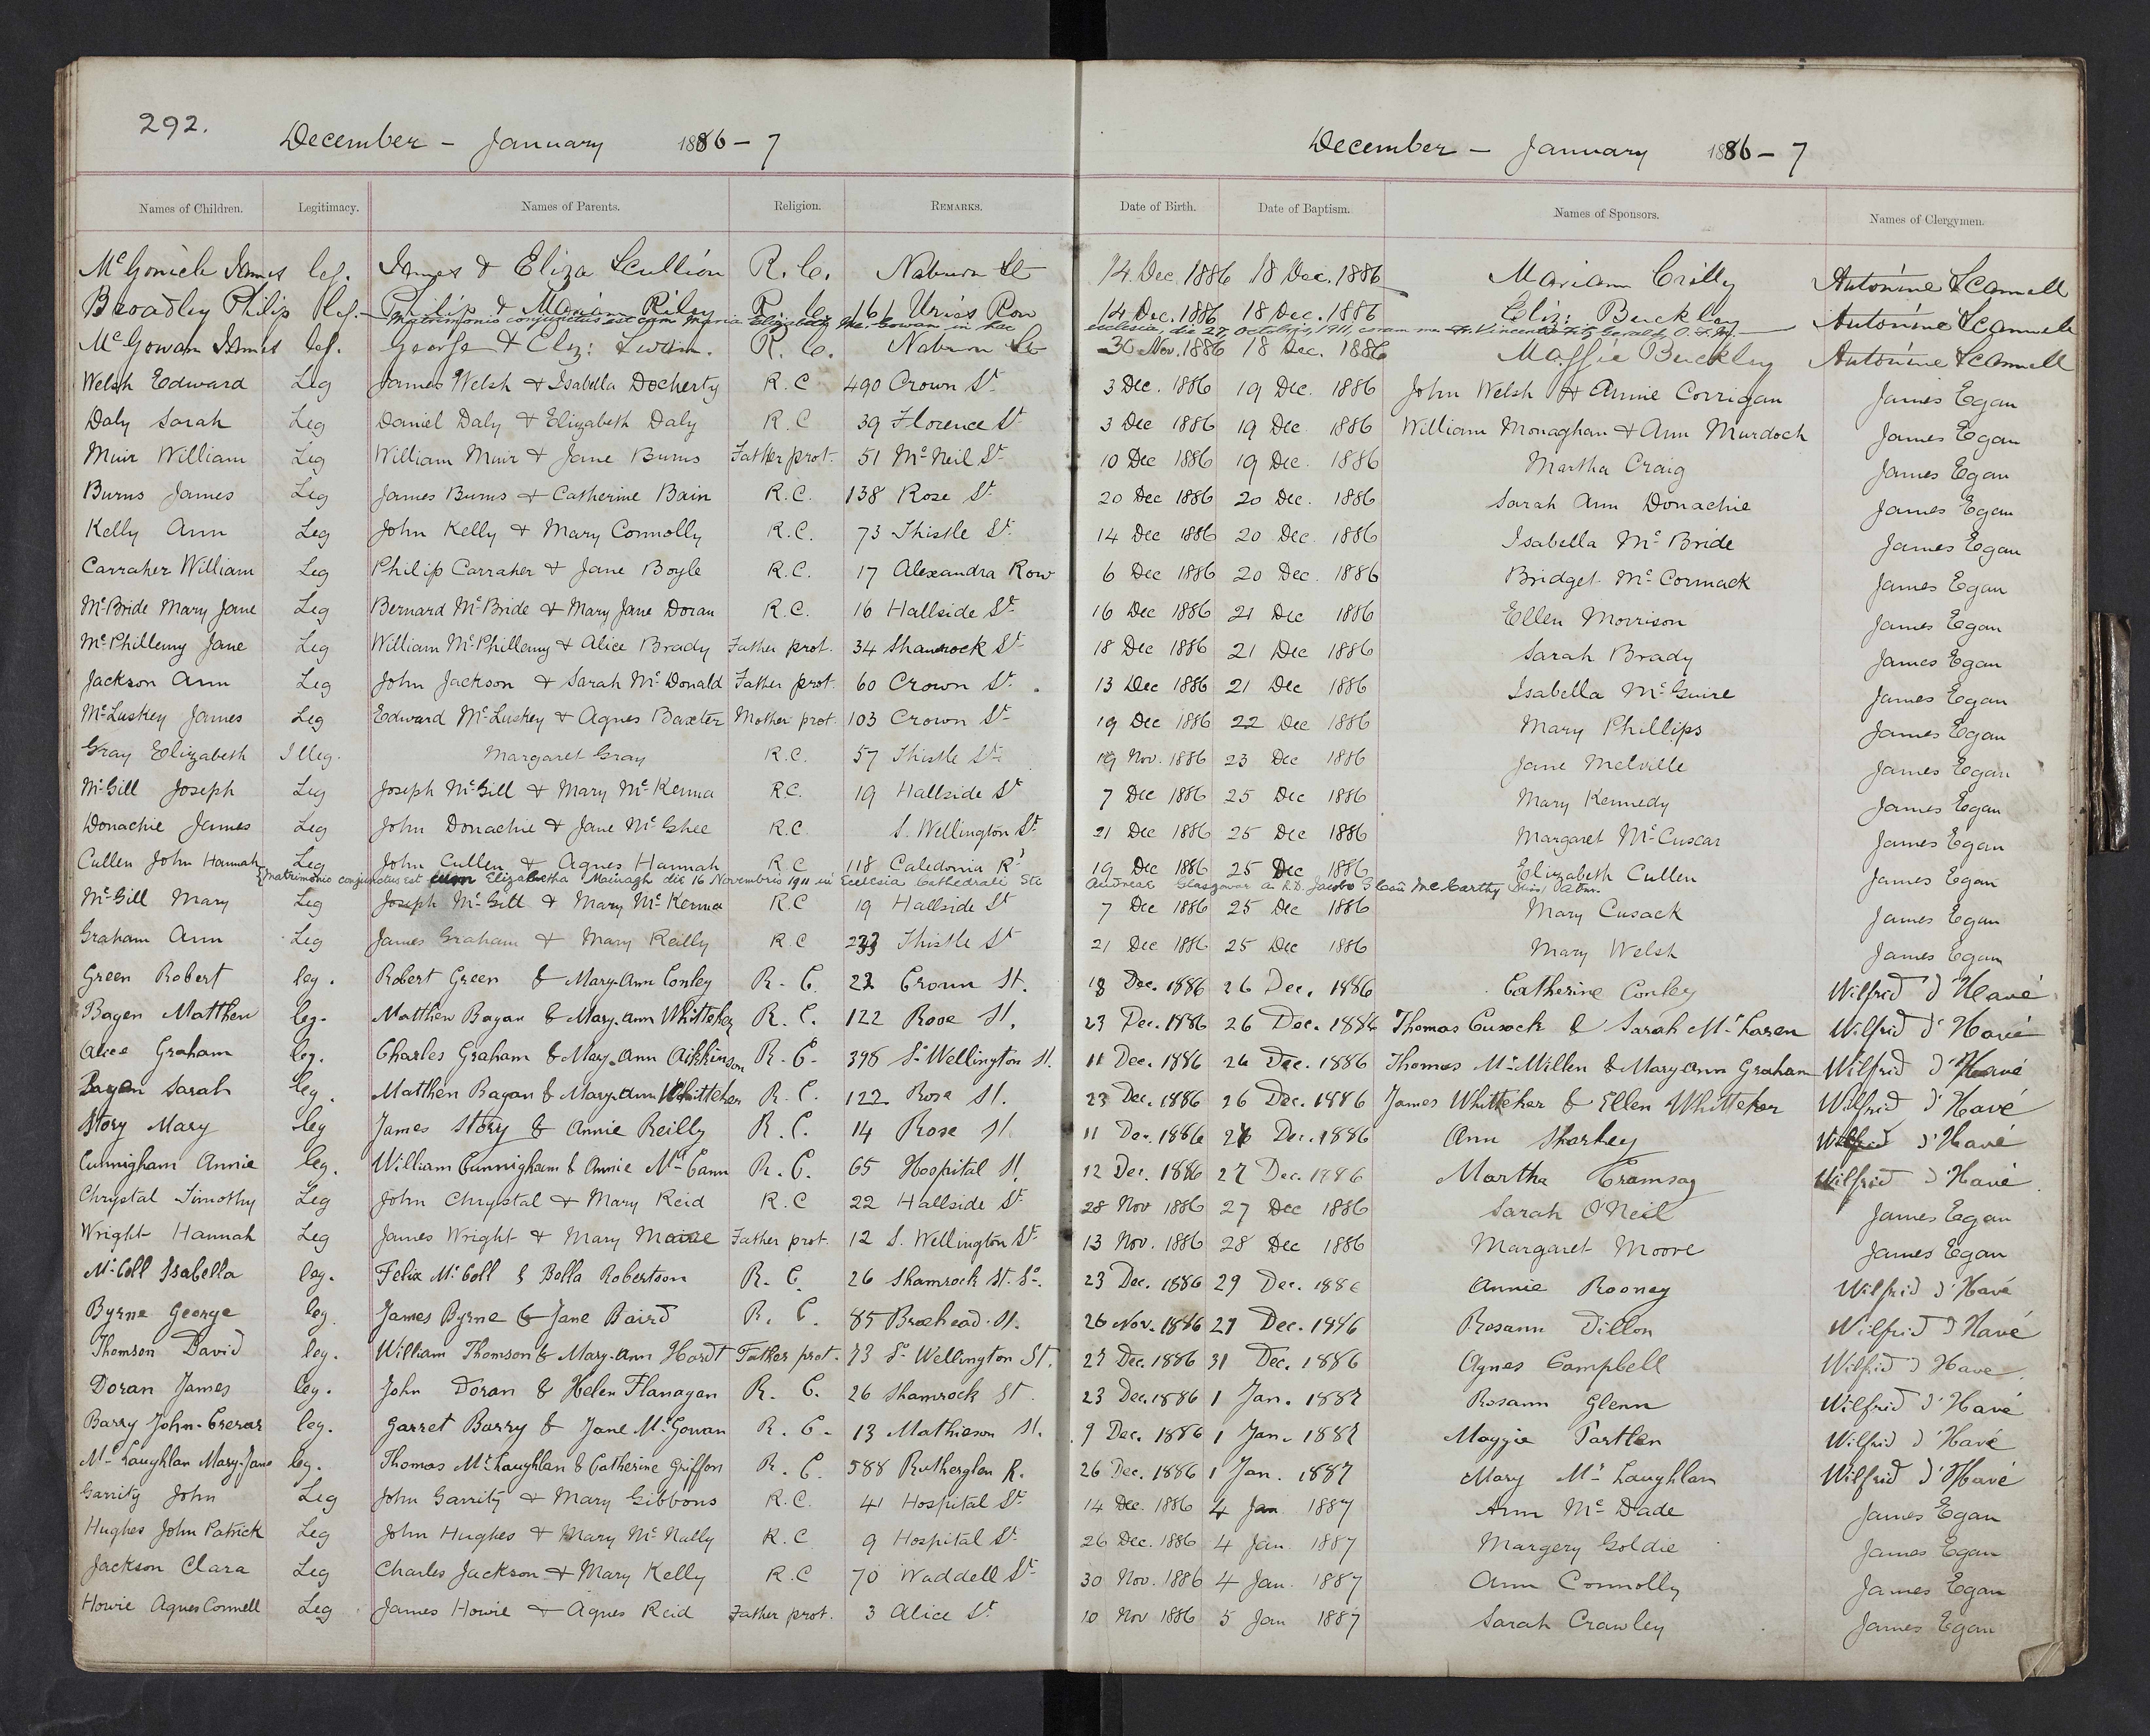 292.
December - January 1886-7 December - January 1886-7
Names of Children. Legitimacy. Names of Parents. Religion. REMARKS. Date of Birth. Date of Baptism. Names of Sponsors. Names of Clergymen.
James leg. James & Eliza Scullion R.C. Naburn St 14 Dec. 1886 18 Dec. 1886 Mariann Crilly Antonine Scannell
Broadley Philip leg. Philip & Riley R.C. 161 Row 14 Dec. 1886 18 Dec. 1886 Eliz: Buckley Antonine Scannell
Matrimonio conjunctus est cum Maria Elizabeth Mc Gowan in hac ecclesia, die 27 Octobris, 1911, coram me Fr. Vincentio Fitzgerald, O.F.M.
McGowan James leg. George & Eliz: R.C. Naburn St 30 Nov. 1886 18 Dec. 1886 Maggie Buckley Antonine Scannell
Welsh Edward Leg James Welsh & Isabella Docherty R.C 490 Crown St 3 Dec. 1886 19 Dec. 1886 John Welsh & Annie Corrigan James Egan
Daly Sarah Leg Daniel Daly & Elizabeth Daly R.C 39 Florence St 3 Dec 1886 19 Dec 1886 William Monaghan & Ann Murdoch James Egan
Muir William Leg William Muir & Jane Burns Father prot. 51 McNeil St 10 Dec 1886 19 Dec. 1886 Martha Craig James Egan
Burns James Leg James Burns & Catherine Bain R.C. 138 Rose St 20 Dec 1886 20 Dec. 1886 Sarah Ann Donachie James Egan
Kelly Ann Leg John Kelly & Mary Connolly R.C. 73 Thistle St 14 Dec 1886 20 Dec. 1886 Isabella McBride James Egan
Carraher William Leg Philip Carraher & Jane Boyle R.C. 17 Alexandra Row 6 Dec 1886 20 Dec. 1886 Bridget McCormack James Egan
McBride Mary Jane Leg Bernard McBride & Mary Jane Doran R.C. 16 Hallside St 16 Dec 1886 21 Dec 1886 Ellen Morrison James Egan
McPhillemy Jane Leg William McPhillemy & Alice Brady Father prot. 34 Shamrock St 18 Dec 1886 21 Dec 1886 Sarah Brady James Egan
Jackson Ann Leg John Jackson & Sarah McDonald Father prot. 60 Crown St. 13 Dec 1886 21 Dec 1886 Isabella McGuire James Egan
McLuskey James Leg Edward McLuskey & Agnes Baxter Mother prot. 103 Crown St 19 Dec 1886 22 Dec 1886 Mary Phillips James Egan
Gray Elizabeth Illeg. Margaret Gray R.C. 57 Thistle St 19 Nov. 1886 23 Dec 1886 Jane Melville James Egan
McGill Joseph Leg Joseph McGill & Mary McKenna R.C. 19 Hallside St 7 Dec 1886 25 Dec 1886 Mary Kennedy James Egan
Donachie James Leg John Donachie & Jane McGhee R.C. S. Wellington St 21 Dec 1886 25 Dec 1886 Margaret McCuscar James Egan
Cullen John Hannah Leg John Cullen & Agnes Hannah R C 118 Caledonia Rd 19 Dec 1886 25 Dec 1886 Elizabeth Cullen James Egan
Matrimonio conjunctus est cum Elizabetha Mainagh die 16 Novembris 1911 in Ecclesia Cathedrali Sti Andreae Glasguae a R.D. Jacobo McCarthy
McGill Mary Leg Joseph McGill & Mary McKenna R.C 19 Hallside St 7 Dec 1886 25 Dec 1886 Mary Cusack James Egan
Graham Ann Leg James Graham & Mary Reilly R.C Thistle St 21 Dec 1886 25 Dec 1886 Mary Welsh James Egan
Green Robert leg. Robert Green & Mary-Ann Conley R.C. 22 Crown St. 18 Dec. 1886 26 Dec. 1886 Catherine Conley Wilfrid d'Havé
Bagen Matthew leg. Matthew Bagan & Mary-ann Whitteker R.C. 122 Rose St. 23 Dec. 1886 26 Dec. 1886 Thomas Cusack & Sarah McLaren Wilfrid d'Havé
Alice Graham leg. Charles Graham & Mary-Ann Aikkinson R.C. 398 So Wellington St. 11 Dec. 1886 26 Dec. 1886 Thomas McMillen & Mary Ann Graham Wilfrid d'Havé
Bagan Sarah leg. Matthew Bagan & Mary-ann Whitteker R.C. 122 Rose St. 23 Dec. 1886 26 Dec. 1886 James Whitteker & Ellen Whitteker Wilfrid d'Havé
Story Mary leg James Story & Annie Reilly R.C. 14 Rose St 11 Dec. 1886 26 Dec. 1886 Ann Sharkey Wilfrid d'Havé
Cunnigham Annie leg. William Cunnigham & Annie McCann R.C. 65 Hospital St. 12 Dec. 1886 27 Dec. 1886 Martha Wilfrid d'Havé
Chrystal Timothy Leg John Chrystal & Mary Reid R.C 22 Hallside St 28 Nov 1886 27 Dec 1886 Sarah O'Neil James Egan
Wright Hannah Leg James Wright & Mary Father prot. 12 S. Wellington St 13 Nov. 1886 28 Dec 1886 Margaret Moore James Egan
McColl Isabella leg. Felix McColl & Bella Robertson R.C. 26 Shamrock St. So. 23 Dec. 1886 29 Dec. 1886 Annie Rooney Wilfrid d'Havé
Byrne George leg. James Byrne & Jane Baird R.C. 85 Braehead St. 26 Nov. 1886 29 Dec. 1886 Rosann Dillon Wilfrid d'Havé
Thomson David leg. William Thomson & Mary-Ann Hardt Father prot. 73 So Wellington St. 27 Dec. 1886 31 Dec. 1886 Agnes Campbell Wilfrid d'Have
Doran James leg. John Doran & Helen Flanagan R.C. 26 Shamrock St 23 Dec. 1886 1 Jan. 1887 Rosann Glenn Wilfrid d'Havé
Barry John-Crerar leg. Garret Barry & Jane McGowan R.C. 13 Mathieson St. 9 Dec. 1886 1 Jan. 1887 Maggie Partlen Wilfrid d'Havé
McLaughlan Mary-Jane leg. Thomas McLaughlan & Catherine Griffon R.C. 588 Rutherglen R. 26 Dec. 1886 1 Jan. 1887 Mary McLaughlan Wilfrid d'Havé
Garrity John Leg John Garrity & Mary Gibbons R.C. 41 Hospital St 14 Dec. 1886 4 Jan 1887 Ann McDade James Egan
Hughes John Patrick Leg John Hughes & Mary McNally R.C 9 Hospital St 26 Dec. 1886 4 Jan. 1887 Margery Goldie James Egan
Jackson Clara Leg Charles Jackson & Mary Kelly R.C 70 Waddell St 30 Nov. 1886 4 Jan. 1887 Ann Connolly James Egan
Howie Agnes Connell Leg James Howie & Agnes Reid Father prot. 3 Alice St 10 Nov 1886 5 Jan 1887 Sarah Crawley James Egan